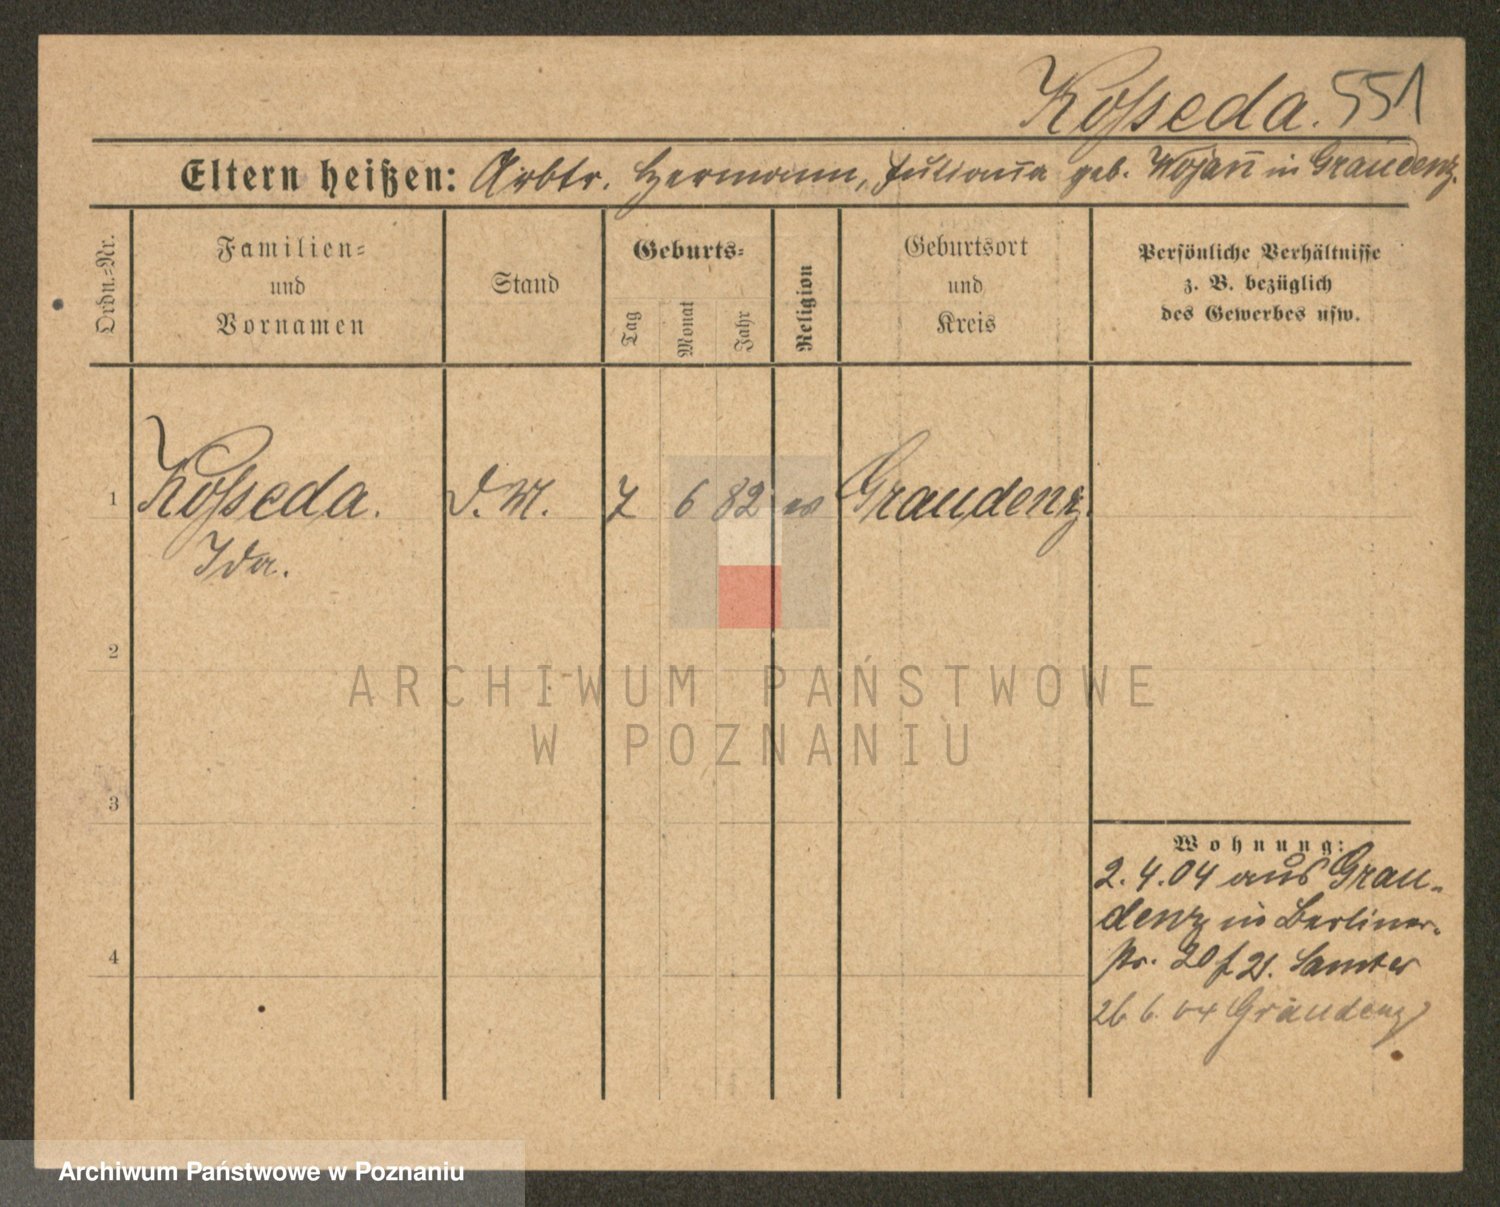 Kosseda. 551
Eltern heißen: Arbtr. Hermann, Juliana geb. Wojan in Graudenz.
Ordn.-Nr.
Familien-
und
Vornamen
Stand
Geburts-
Tag
Monat
Jahr
Religion
Geburtsort
und
Kreis
Persönliche Verhältnisse
z. B. bezüglich
des Gewerbes usw.
1 Kosseda. D. M. 7 6 82 ev Graudenz.
Ida.
2
3
4
Wohnung:
2.4.04 aus Grau-
denz in Berliner-
str. 20 f 21. Samter
26 6. 04 Graudenz
ARCHIWUM PAŃSTWOWE
W POZNANIU
Archiwum Państwowe w Poznaniu